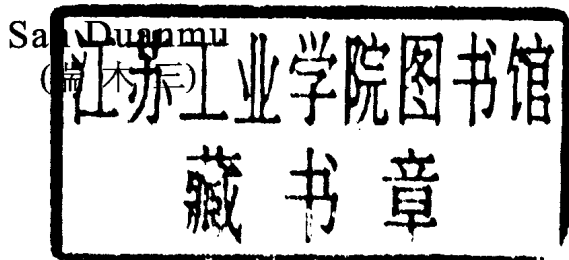 San Duanmu
(端木三)
江苏工业学院图书馆
藏书章